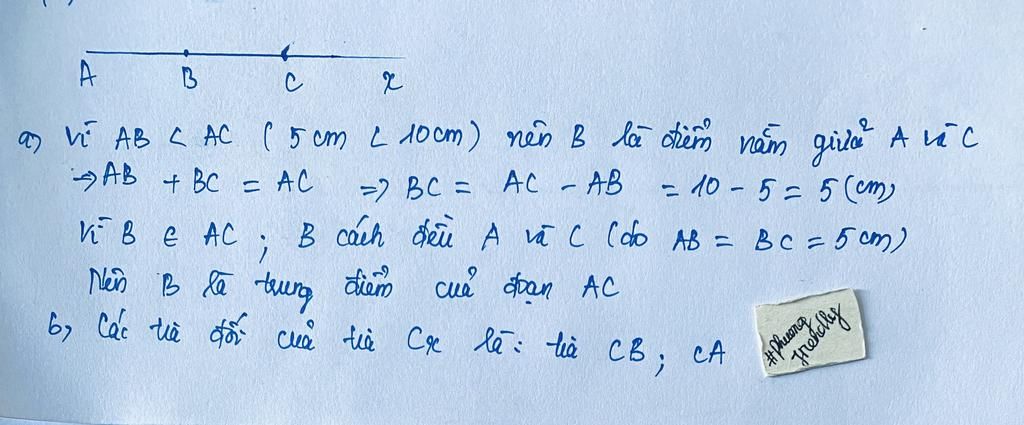 A B C x
a, Vì AB < AC ( 5 cm < 10 cm ) nên B là điểm nằm giữa A và C
→ AB + BC = AC => BC = AC - AB = 10 - 5 = 5 (cm)
Vì B ∈ AC ; B cách đều A và C (do AB = BC = 5 cm)
Nên B là trung điểm của đoạn AC
b, Các tia đối của tia Cx là : tia CB ; CA